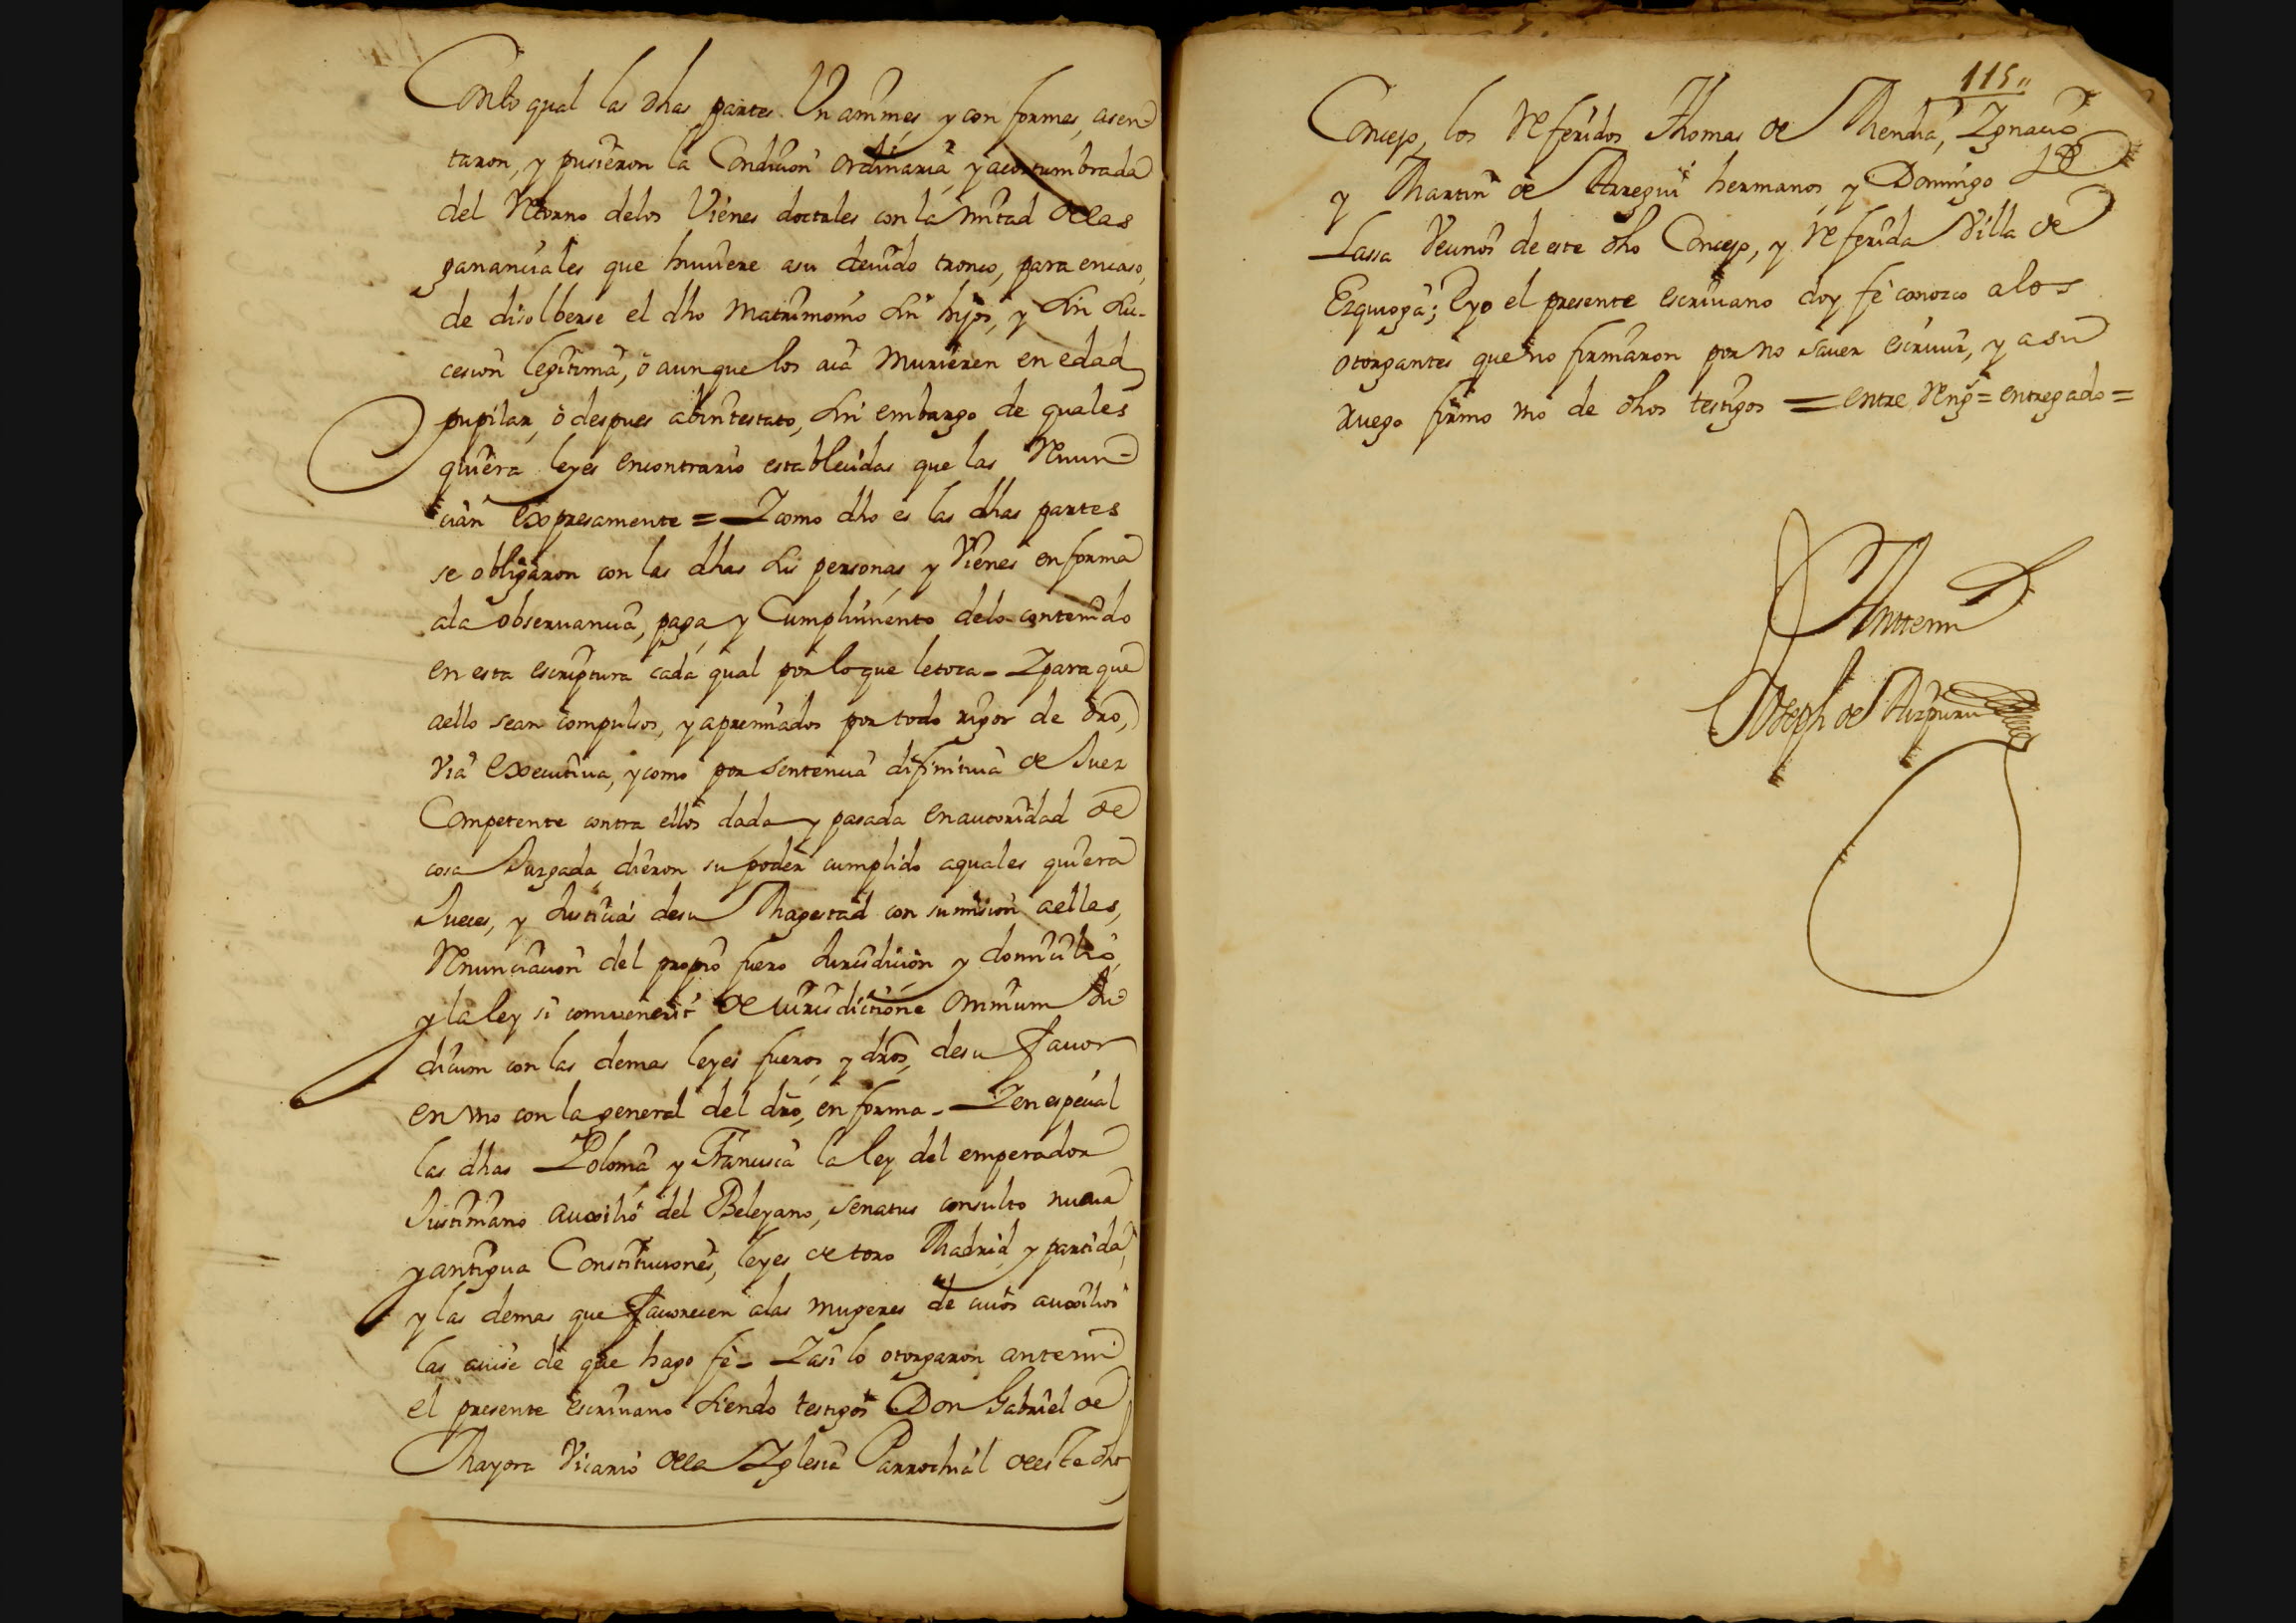 Conlo qual las dhas partes Unanimes y con formes, asen-
taron, y pusieron la Condicion ordinaria y acostumbrada
del Retorno delos Vienes doctales con la mitad dellas
gananciales que huuiere asu deuido tronco, para encaso,
de disolberse el dho matrimonio sin hijos, y sin su-
cesion legitima, ó aunque los aia murieren en edad
pupilar, ó despues abintestato, sin embargo de quales
quiera leyes encontrario establecidas que las Renun-
cian expresamente = Y como dho es las dhas partes
se obligaron con las dhas sus personas y Vienes en forma
ala obseruancia, paga y Cumplimiento delo contenido
en esta escriptura cada qual por loque letoca - Y para que
aello sean compulsos, y apremiados por todo rigor de dro,
via executiua, y como por sentencia difinitiua de Juez
Competente contra ellos dada y pasada en autoridad de
cosa Juzgada dieron su poder cumplido aquales quiera
Jueces, y Justicias desu Magestad con sumision aellas,
Renunciacion del propio fuero Jurisdicion y domicilio,
y la ley si conuenerit de iurisdictione omnium Ju-
dicum con las demas leyes fueros, y dros, desu fauor
en vno con la general del dro, en forma - Y en especial
las dhas Polonia y Francisca la ley del emperador
Justiniano auxilio del Beleyano, senatus consulto nueua
y antigua Constituciones, leyes de toro Madrid, y partida,
y las demas que fauorecen alas mugeres de cuios auxilios
las auise de que hago fe - Y asi lo otorgaron antemi
el presente escriuano siendo testigos Don Gabriel de
Mayora Vicario dela Yglesia Parrochial deeste dho
115
Concejo, los Referidos Thomas de Mendia, Ygnacio
y Martin de Arregui hermanos, y Domingo de
Lassa Vecinos de este dho Concejo, y Referida Villa de
Ezquioga; E yo el presente escriuano doy fe conozco alos
otorgantes que no firmaron por no sauer escriuir, y a su
ruego firmo vno de dhos testigos = entre Reng = entregado =
Anttemi
Joseph de Aizpuru